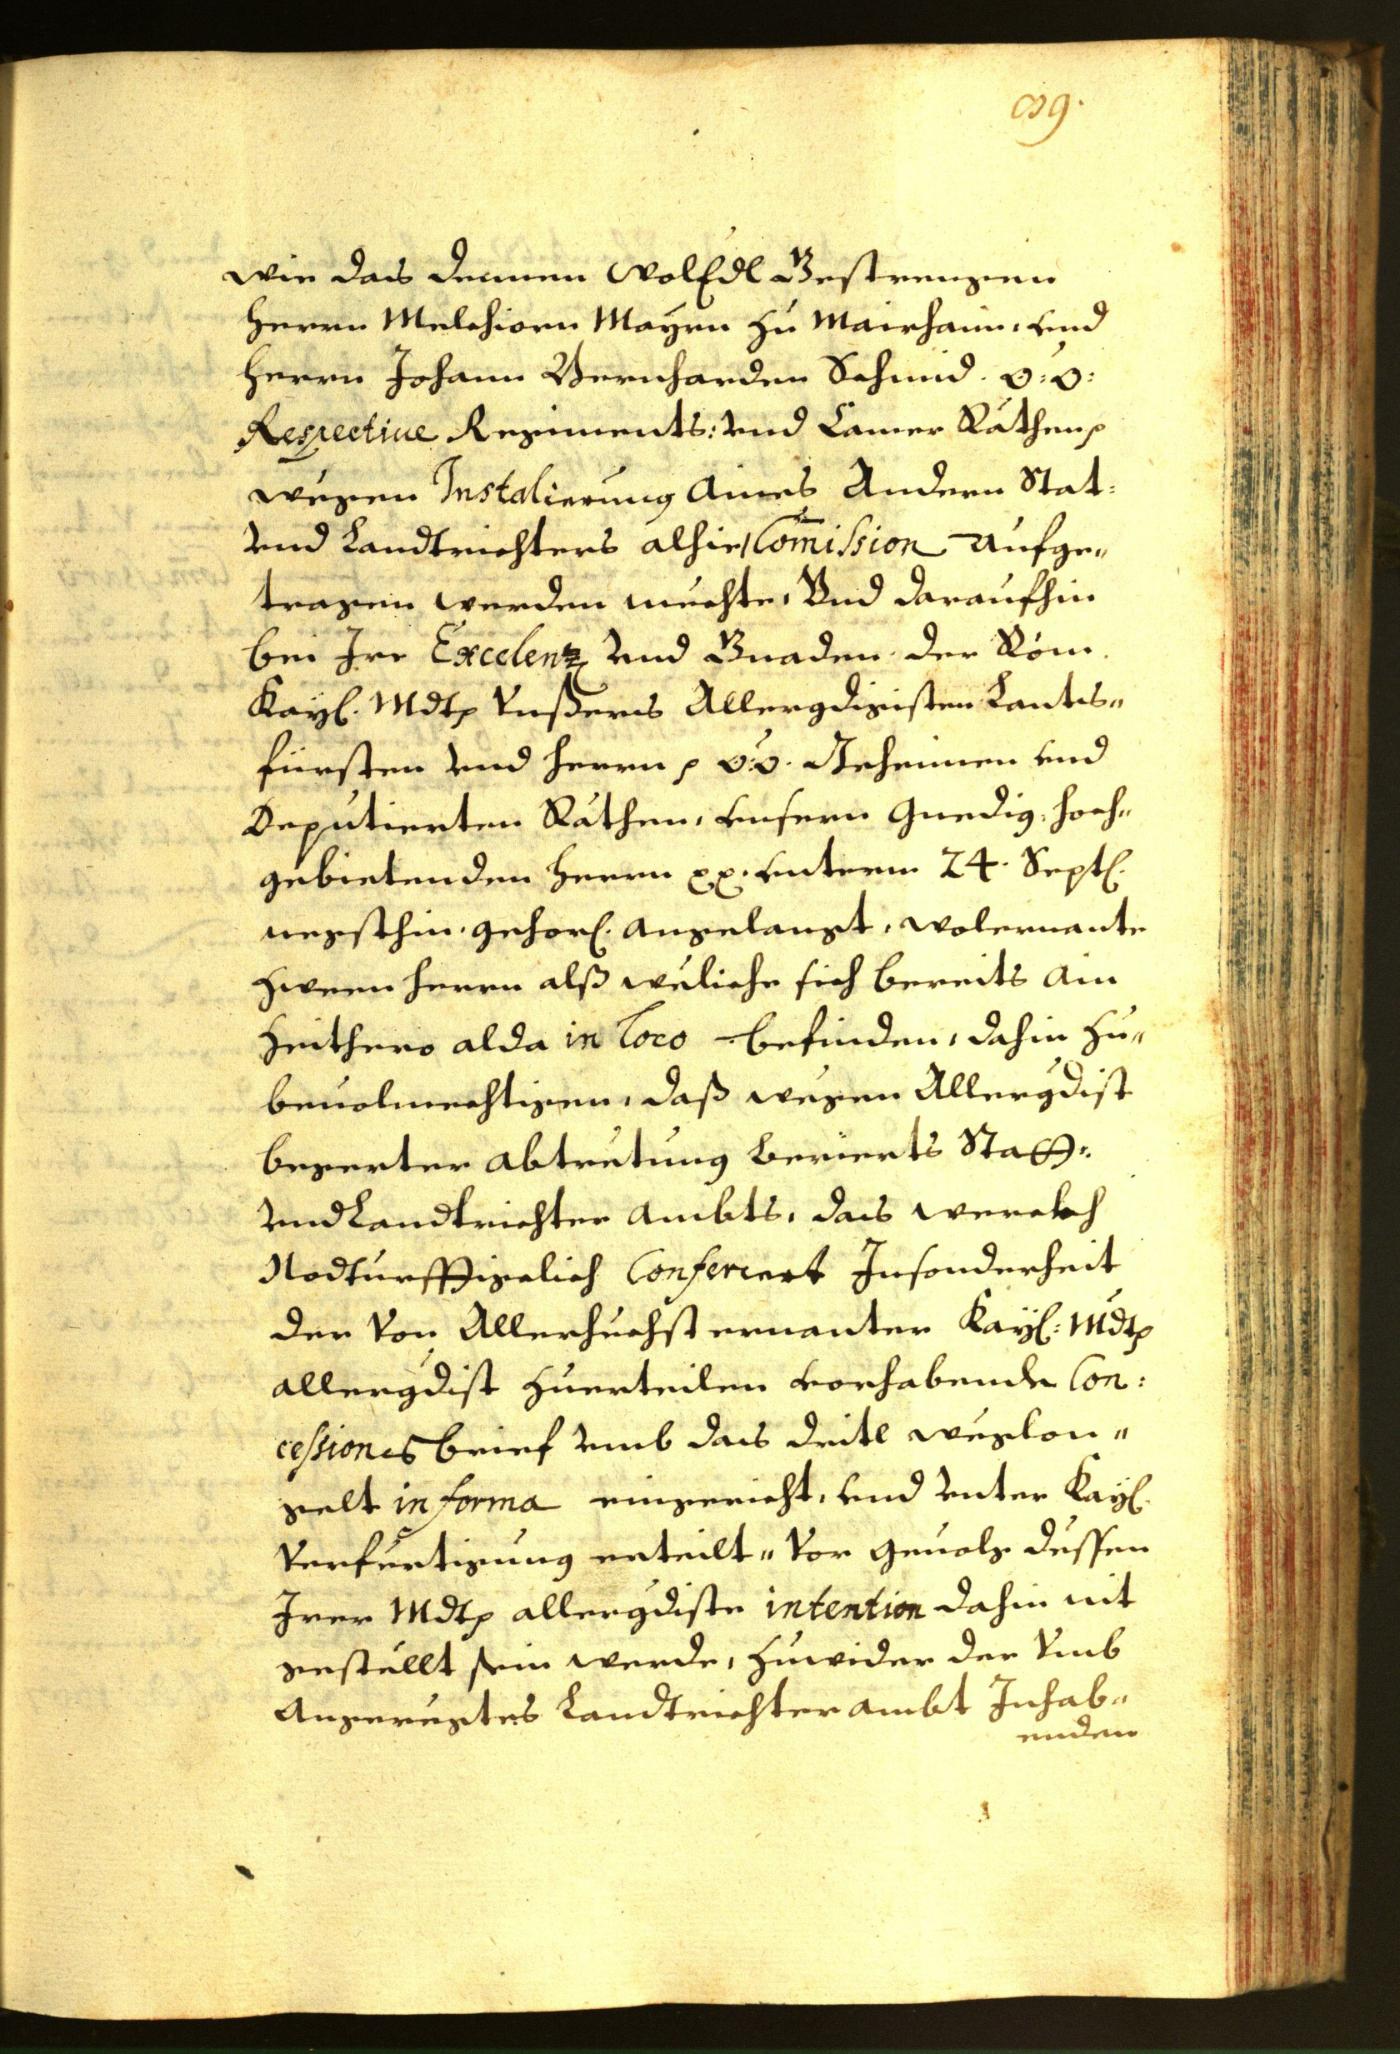 wie das dennen WolEdl Gestrengen
Herrn Melchiorn Mayrn zu Mairhaim, und
Herrn Johann Bernharden Schmid. o: ö:
Respectiue Regiments: vnd Camer Räthen p
wegen Instalierung Aines Andern Stat:
vnd Landtrichters alhie, Comission Aufge„
tragen werden mechte, Vnd daraufhin
bei Ire Excelenz vnd Gnaden der Röm.
Kayl. Mdtp Vnßers Allergdigisten Lants„
fürsten vnd Herrn p o: ö. Geheimen und
Deputierten Räthen, unsern Gnedig: hoch„
gebietenden Herrn pp. unterm 24. Septl.
negsthin gehorl. angelangt, wolernante
zween Herrn alß weliche sich bereits ain
Zeithero alda in loco befinden, dahin zu„
beuolmechtigen, daß wegen Allergdist
begerter abtretung berierts Statt:
vnd Landtrichter Ambts, das werckh
Nodturfftigelich Conferiert Insonderheit
der Von Allerhechsternanter Kayl: Mdtp
allergdist zuerteilen vorhabende Con:
cessions brief vmb das dritl weglon„
gelt in forma eingericht, und vnter Kayl.
Verfertigung erteilt„ Vor Geuolg dessen
Irer Mdtp allergdiste intention dahin nit
gestellt sein werde, zuwider der Vmb
Angeregtes Landtrichter ambt Inhab„
enden